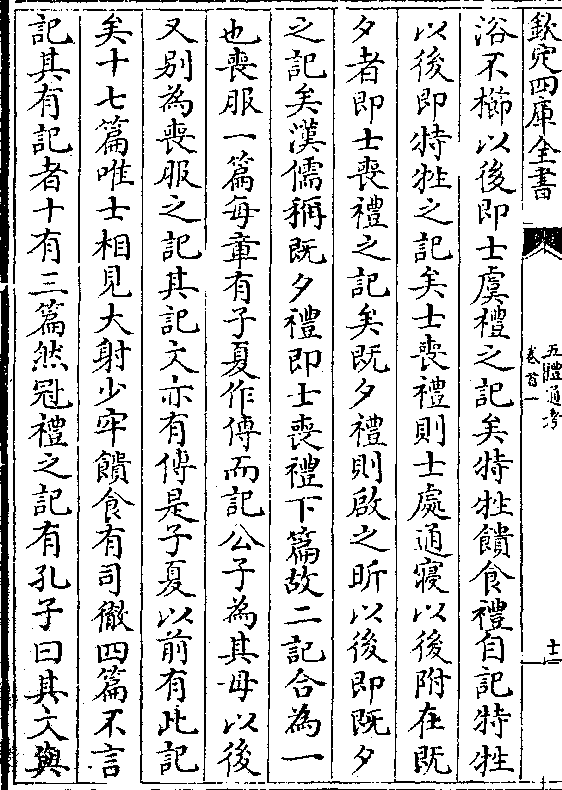 欽定四庫全書
五禮通考
卷首一
十四
浴不櫛以後即士虞禮之記矣特牲饋食禮自記特牲
以後即特牲之記矣士喪禮則士處適寢以後附在既
夕者即士喪禮之記矣既夕禮則啟之昕以後即既夕
之記矣漢儒稱既夕禮即士喪禮下篇故二記合為一
也喪服一篇每章有子夏作傳而記公子為其母以後
又別為喪服之記其記文亦有傳是子夏以前有此記
矣十七篇唯士相見大射少牢饋食有司徹四篇不言
記其有記者十有三篇然冠禮之記有孔子曰其文與